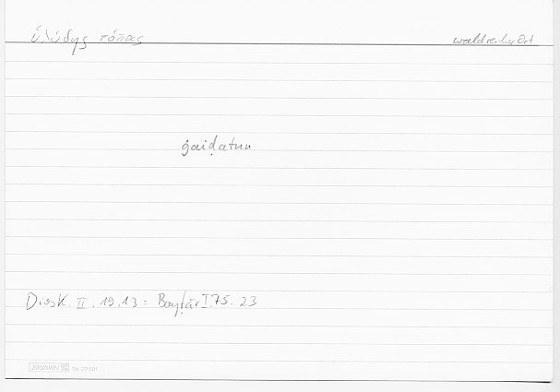 ὑλώδης τόπος waldreicher Ort
ġaiḍatun
Diosk. II. 19,13 = Bayṭār I 75. 23